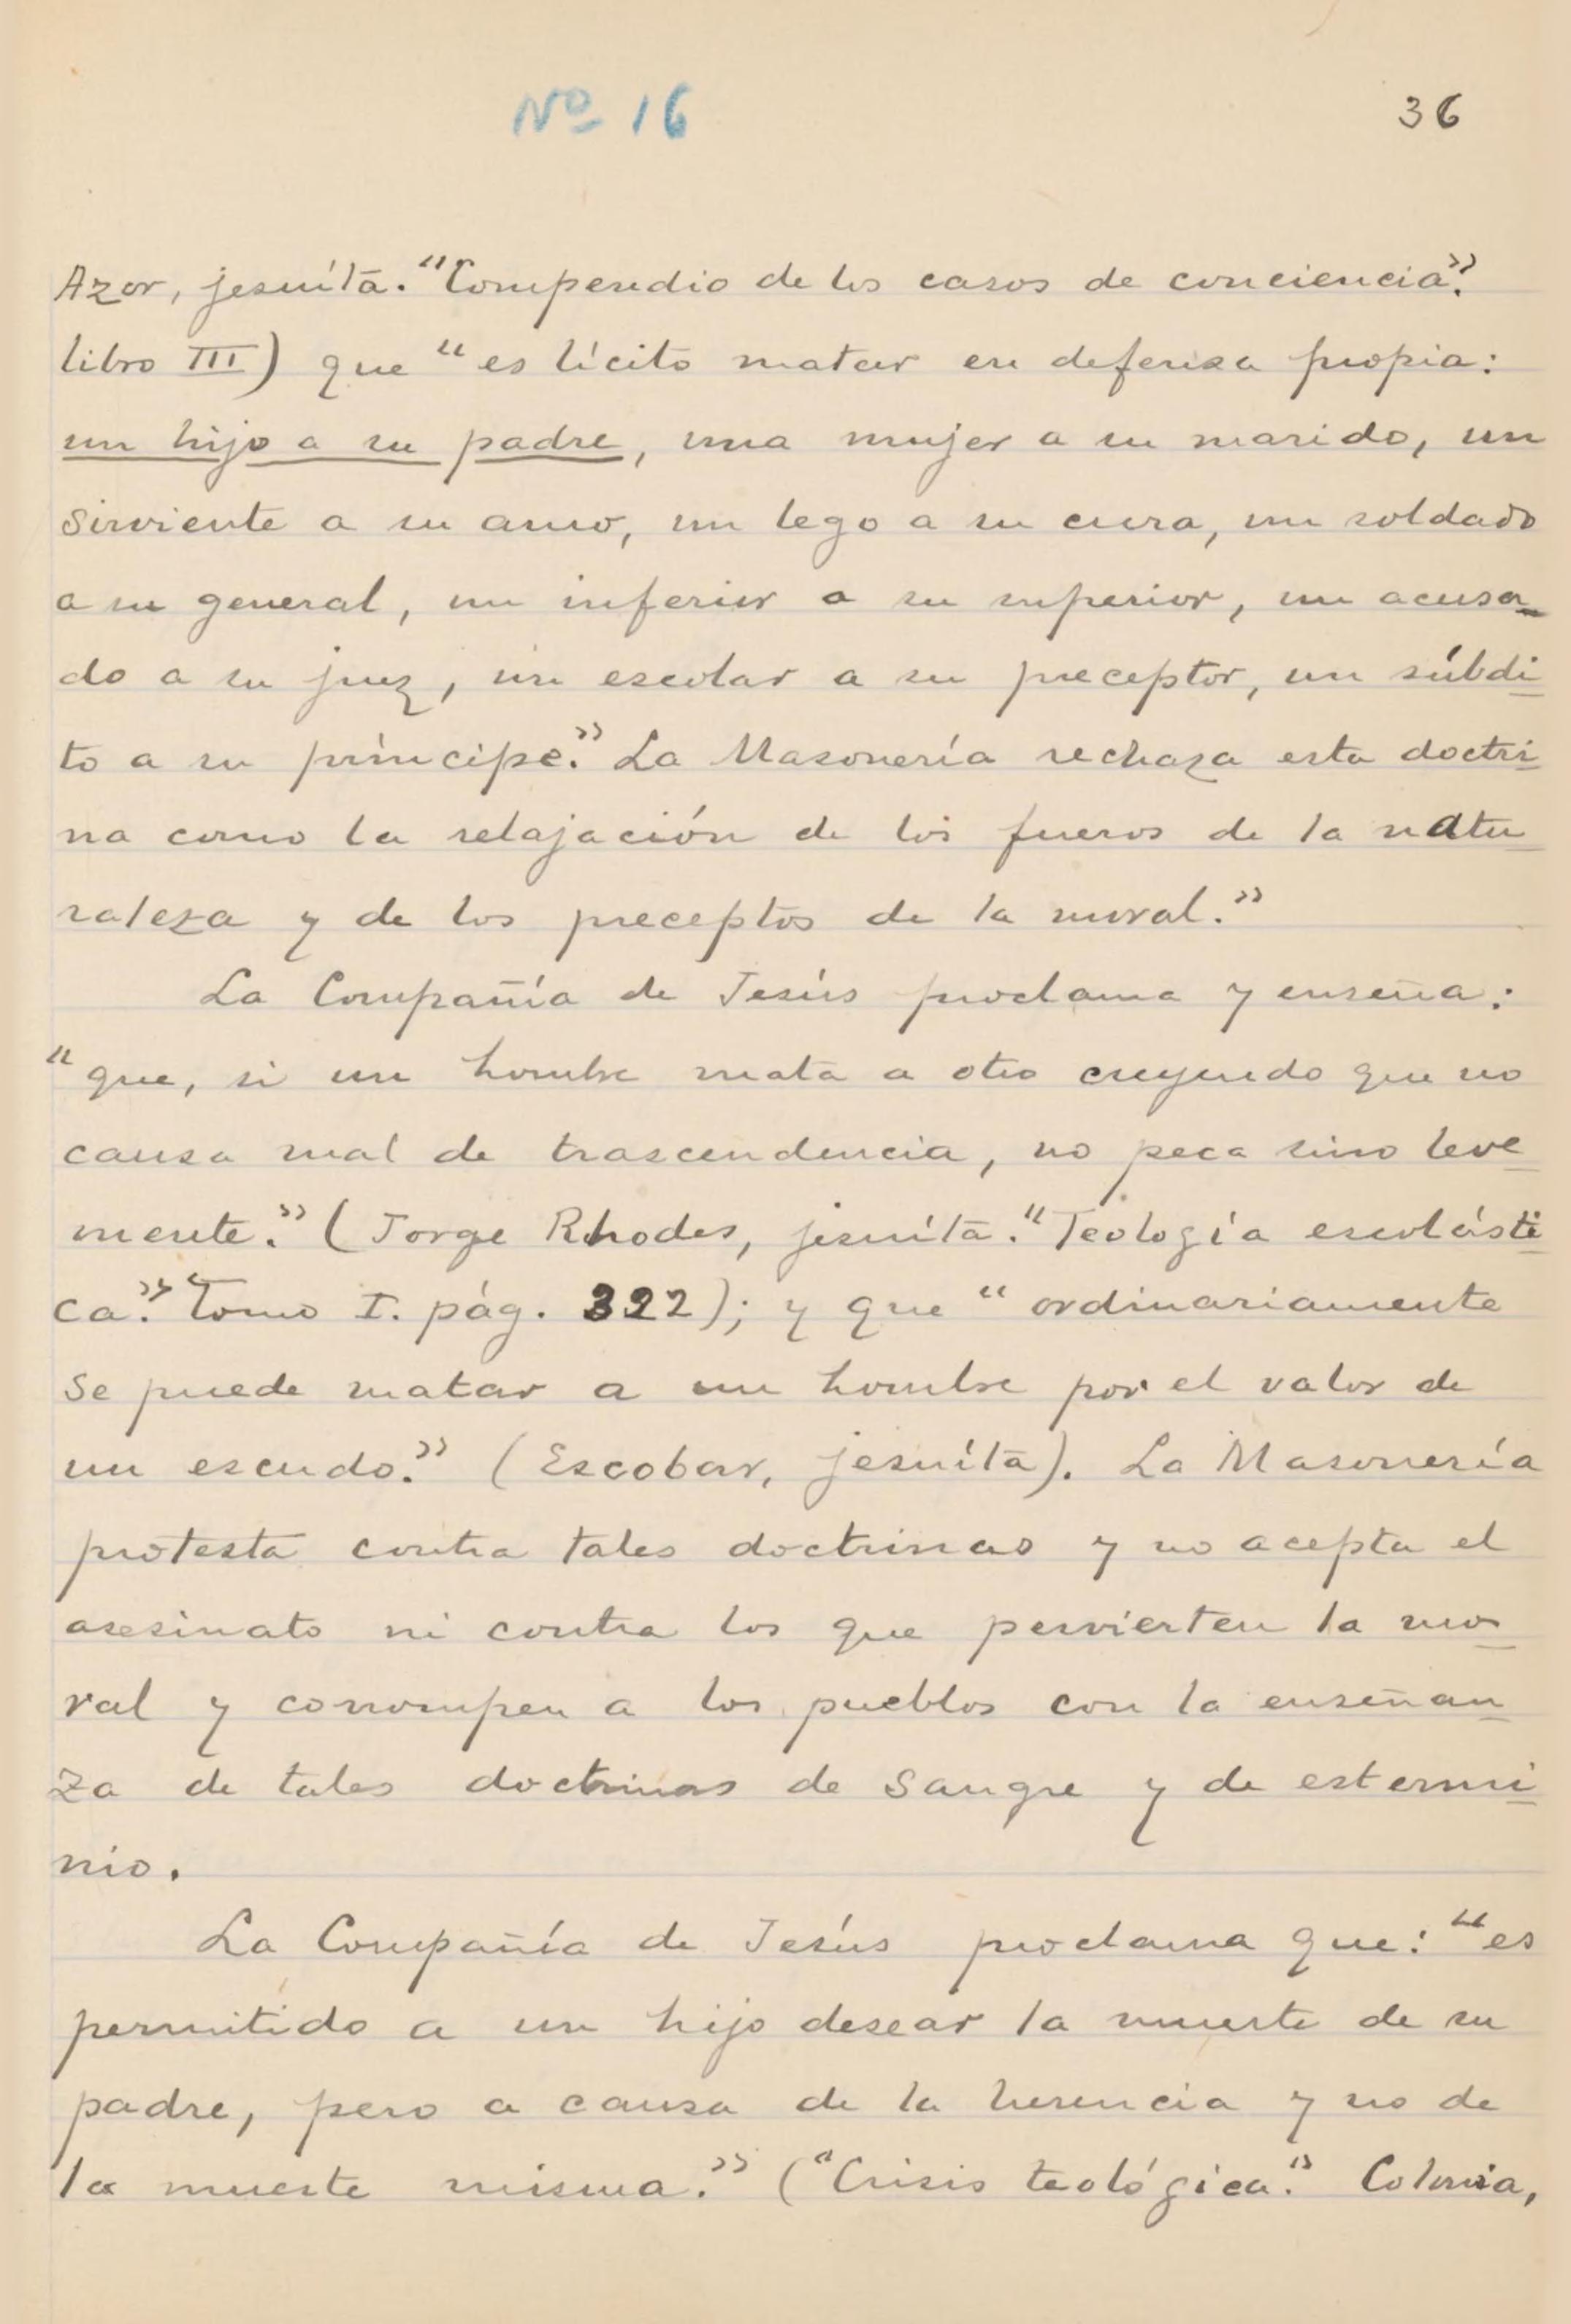 Nº 16
36
Azor, jesuíta. "Compendio de los casos de conciencia."
libro III) que "es lícito matar en defensa propia:
un hijo a su padre, una mujer a su marido, un
sirviente a su amo, un lego a su cura, un soldado
a su general, un inferior a su superior, un acusa-
do a su juez, un escolar a su preceptor, un súbdi-
to a su príncipe." La Masonería rechaza esta doctri-
na como la relajación de los fueros de la natu-
raleza y de los preceptos de la moral."
La Compañía de Jesús proclama y enseña:
"que, si un hombre mata a otro creyendo que no
causa mal de trascendencia, no peca sino leve-
mente." (Jorge Rhodes, jesuíta. "Teología escolásti-
ca." Tomo I. pág. 322); y que "ordinariamente
se puede matar a un hombre por el valor de
un escudo." (Escobar, jesuíta). La Masonería
protesta contra tales doctrinas y no acepta el
asesinato ni contra los que pervierten la mo-
ral y corrompen a los pueblos con la enseñan-
za de tales doctrinas de sangre y de estermi-
nio.
La Compañía de Jesús proclama que: "es
permitido a un hijo desear la muerte de su
padre, pero a causa de la herencia y no de
la muerte misma." ("Crisis teológica." Colonia,